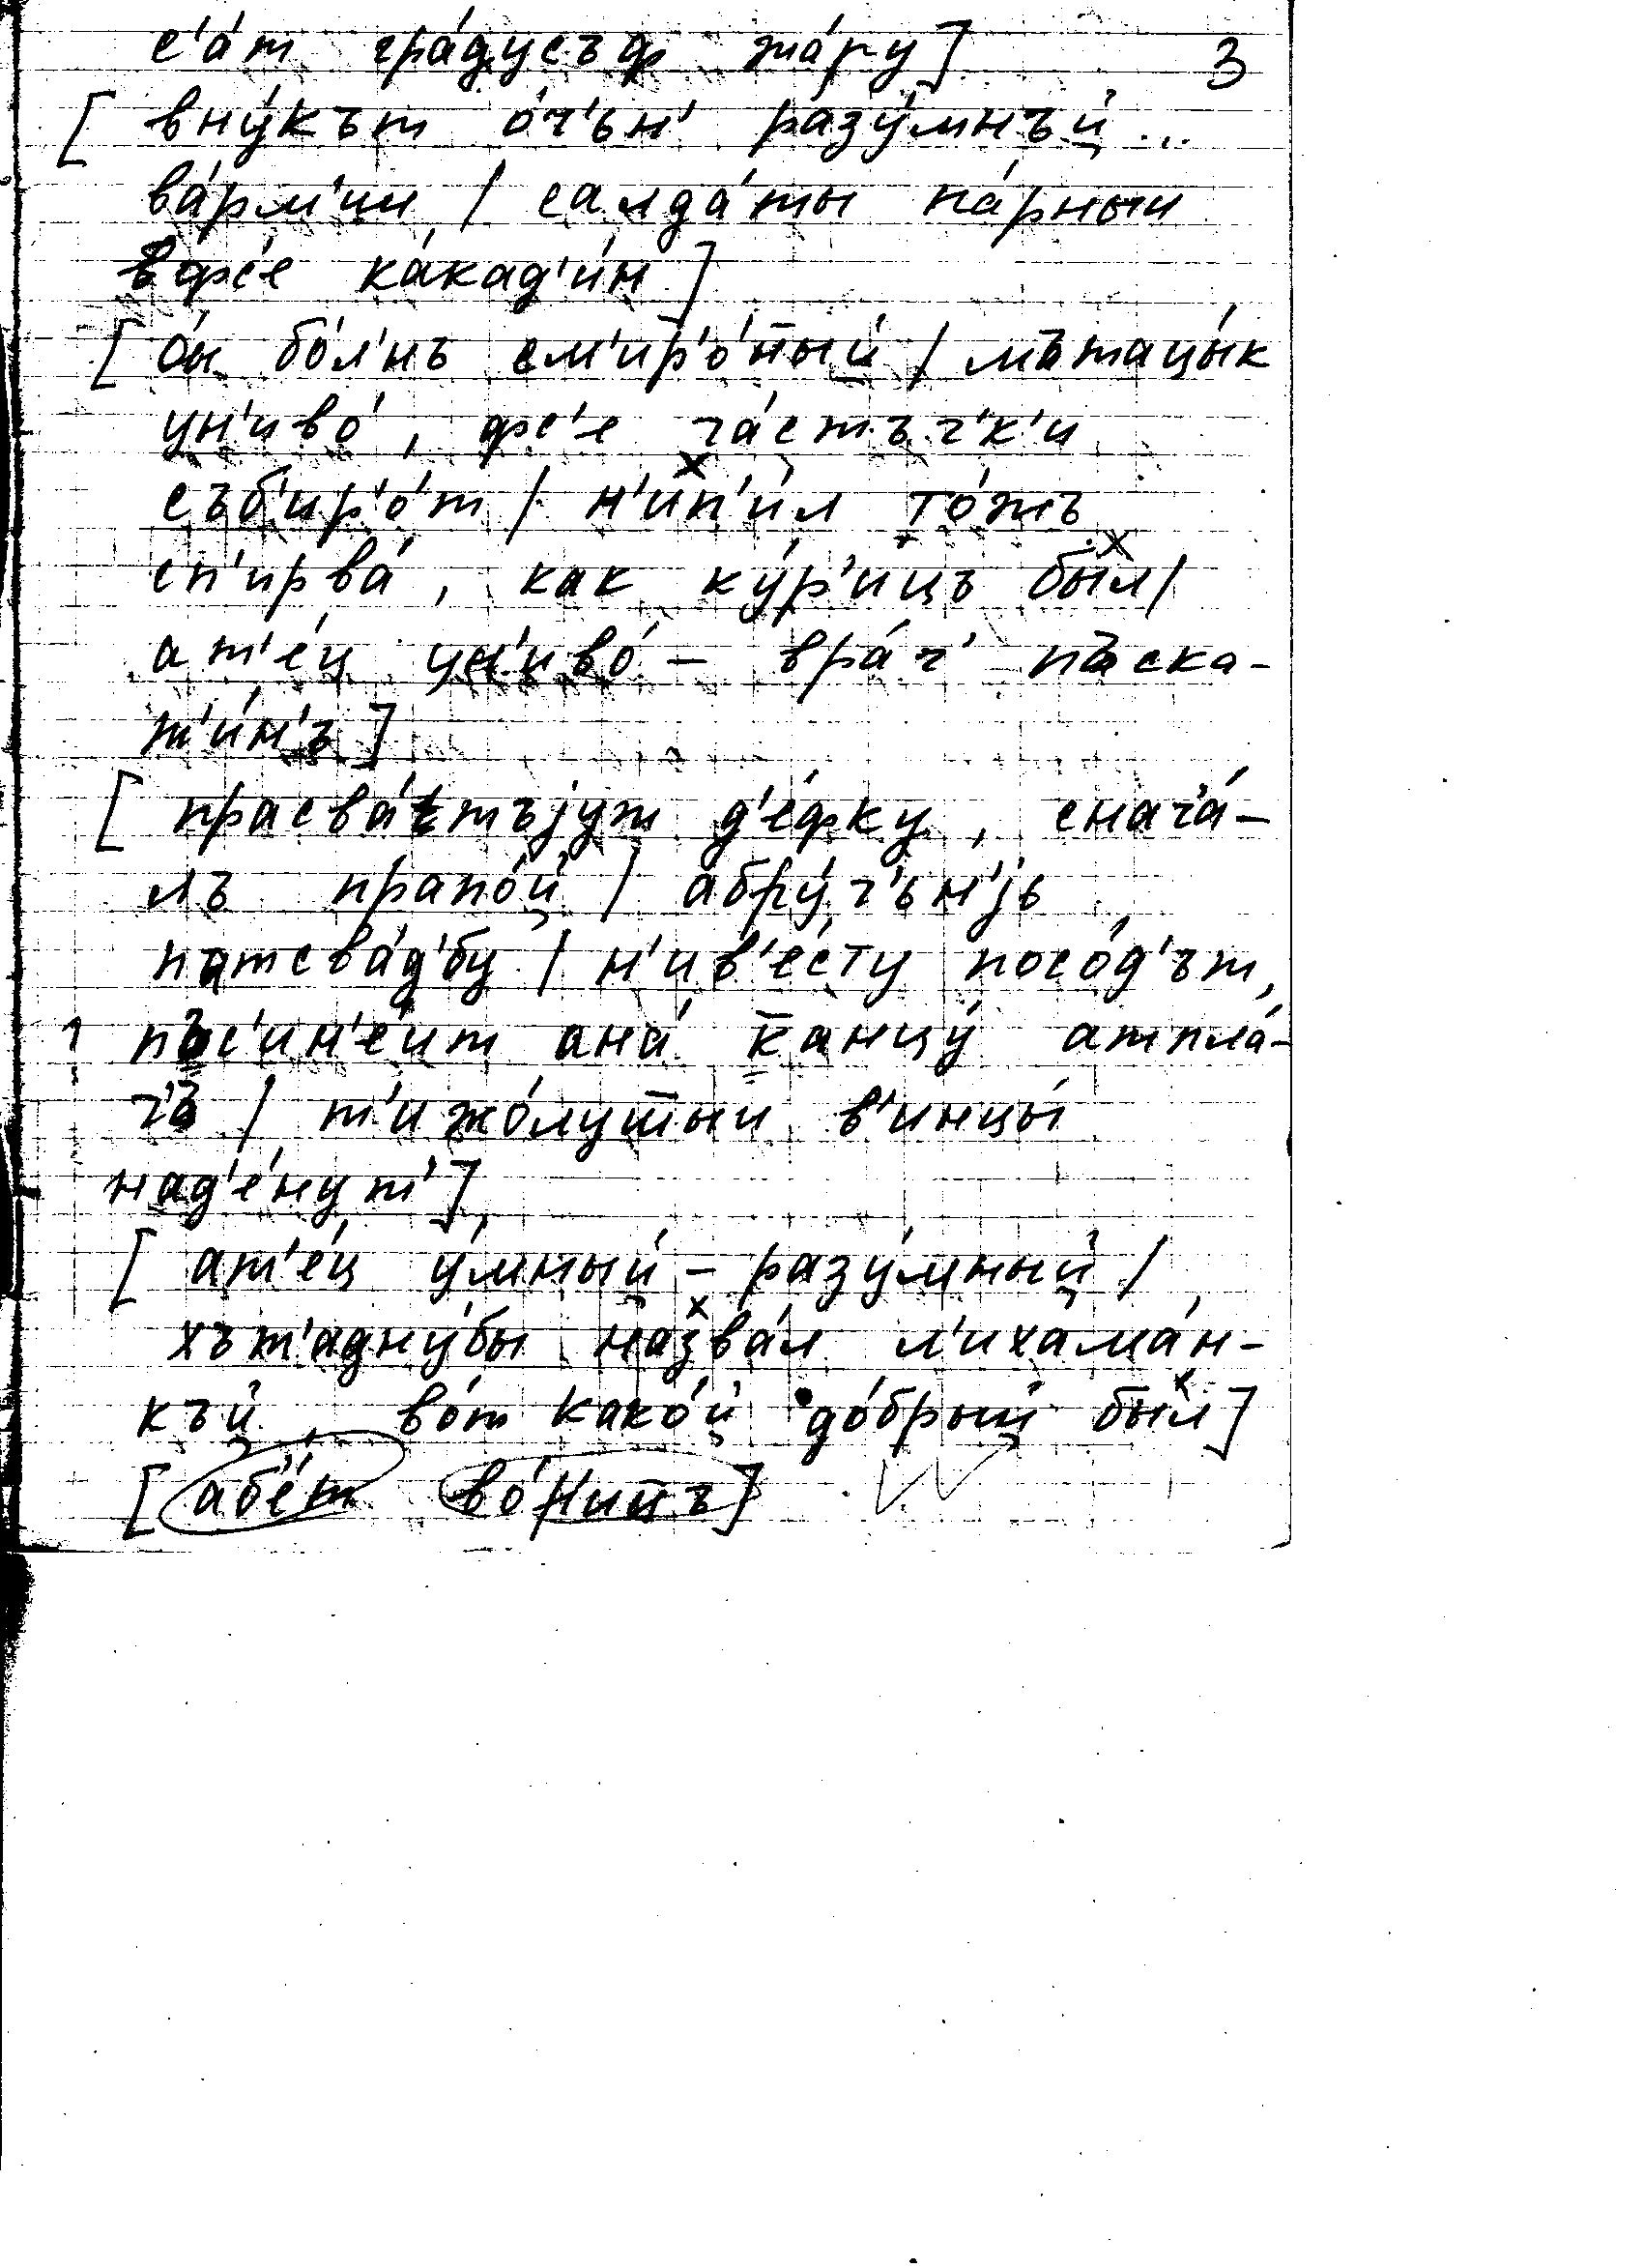 с'а́т гра́дусъф жа́ру] 3
[ вну́кът о́ч'ън' разу́мнъй...
ва́рм'ии / салда́ты па́рныи
фс'е ка́кад'и́н]
[ о́н бо́л'нъ см'ир'о́ный / мътацы́к
ун'иво́, фс'е ча́стъч'к'и
съб'ир'о́т / н'ип'и́л то́жъ
сп'ирва́, как ку́р'ицъ бы́л /
ат'е́ц ун'иво́ – вра́ч' пъска-
т'и́н'ъ]
[ прасва́тъjут д'е́фку, снач'а́-
лъ прапо́й / абру́ч'ън'jь
патсва́д'бу / н'ив'е́сту посо́д'ът,
пъс'ин'е́ит ана́ канцу́ атпла́-
ч'ь / т'ижо́лутыи в'инцы́
над'е́нут']
[ ат'е́ц у́мный – разу́мный /
хът'адну́бы назва́л л'ихама́н-
къй, во́т како́й до́брый бы́л]
[ абе́т во́нипъ]